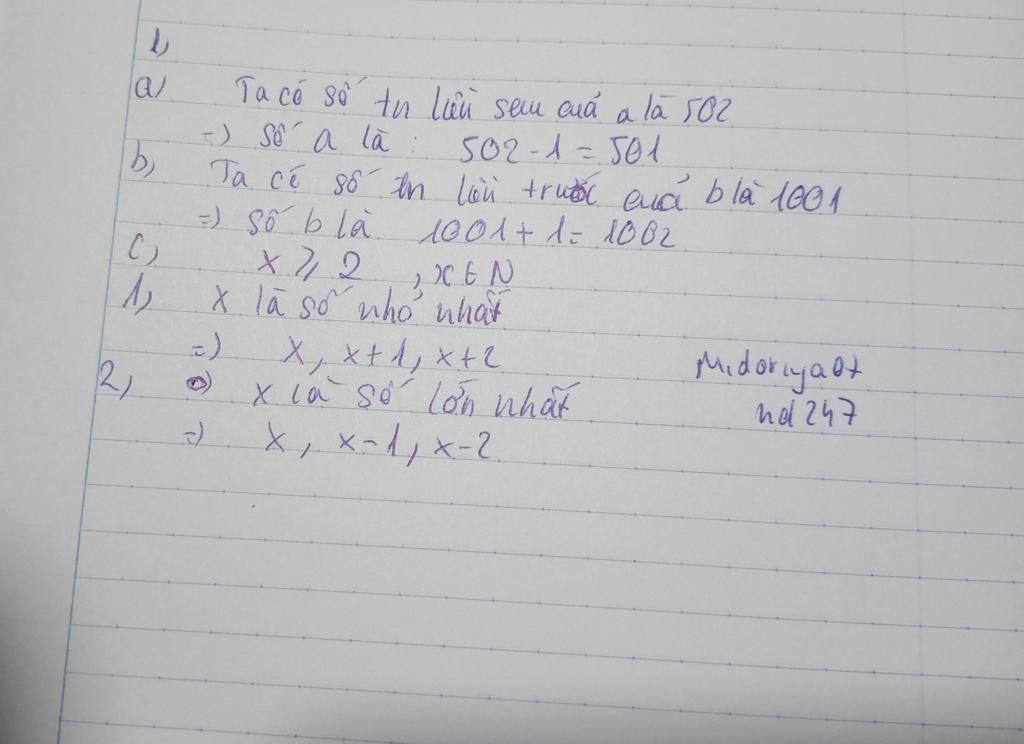 1,
a) Ta có số tn liền sau của a là 502
=) số a là : 502 - 1 = 501
b) Ta có số tn liền trước của b là 1001
=) số b là 1001 + 1 = 1002
c) x ⩾ 2 , x ∈ N
1, x là số nhỏ nhất
=) x, x+1, x+2
2, x là số lớn nhất
=) x, x-1, x-2
Midoriya0t
hd247